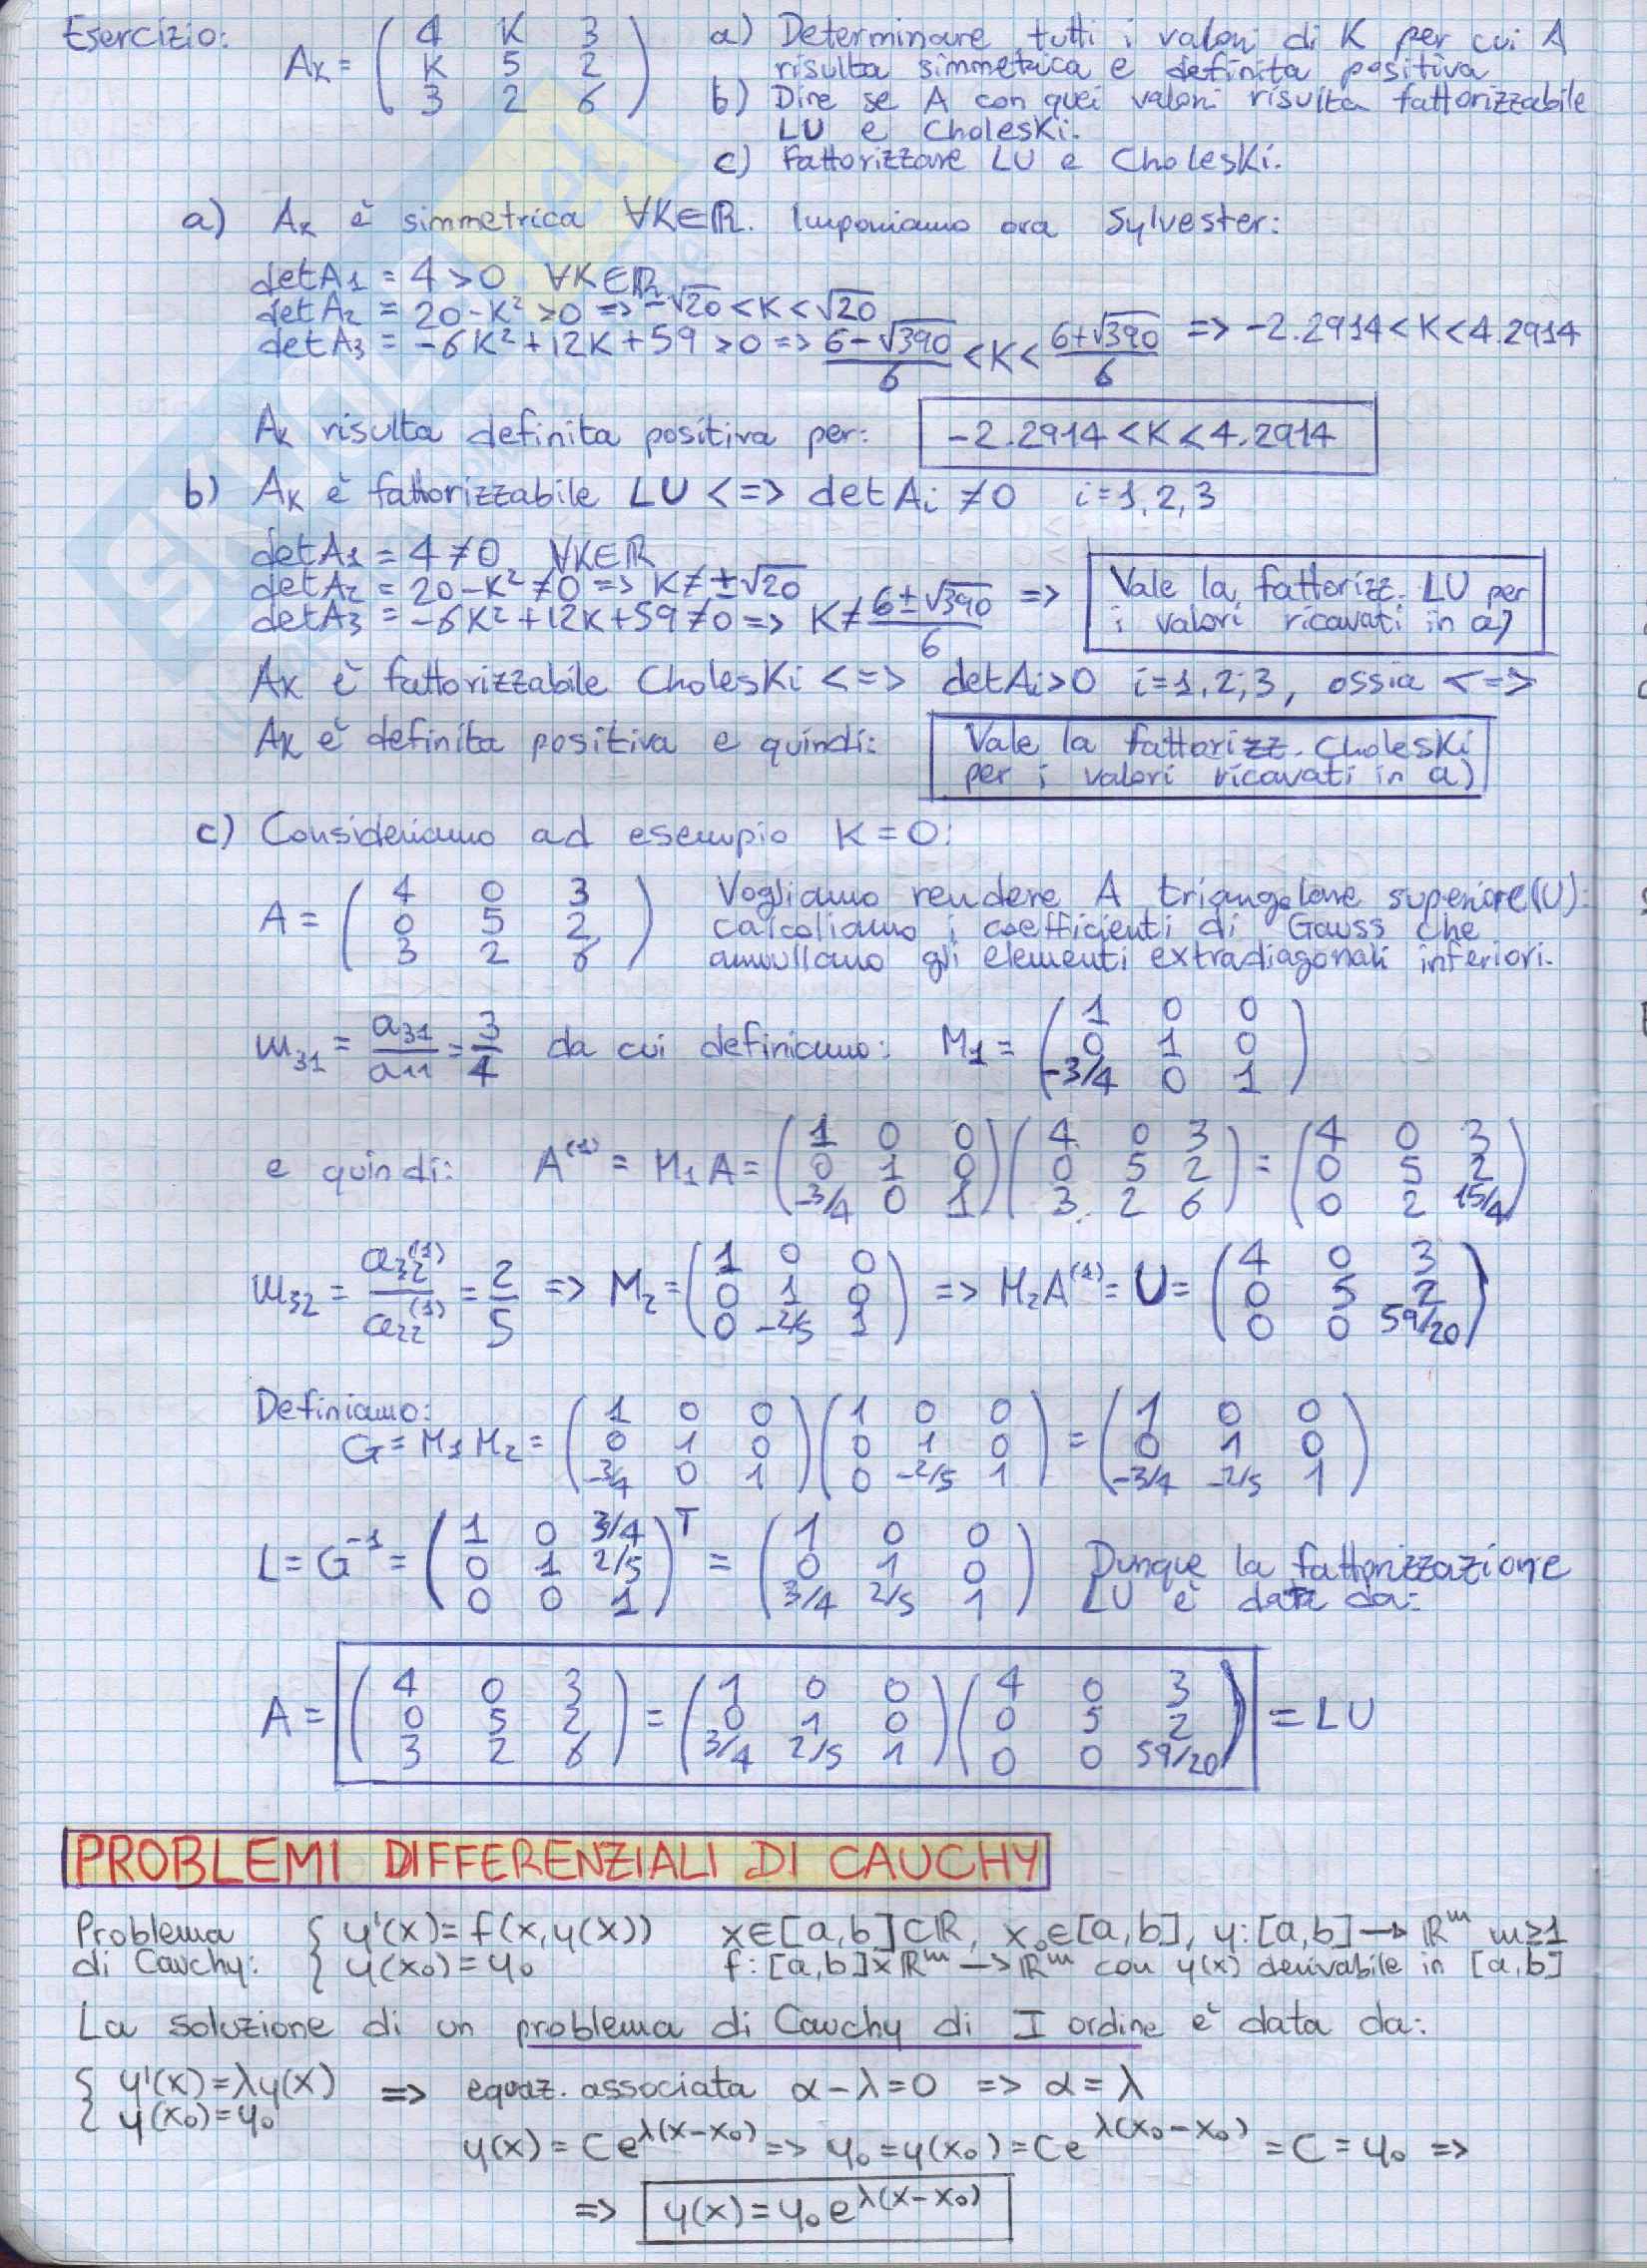 Esercizio:
A_K = ( 4 K 3
K 5 2
3 2 6 )
a) Determinare tutti i valori di K per cui A
risulta simmetrica e definita positiva
b) Dire se A con quei valori risulta fattorizzabile
LU e Choleski.
c) Fattorizzare LU e Choleski.
a) A_K è simmetrica ∀K∈ℝ. Imponiamo ora Sylvester:
detA1 = 4 > 0 ∀K∈ℝ
detA2 = 20 - K² > 0 => -√20 < K < √20
detA3 = -6K² + 12K + 59 > 0 => (6-√390)/6 < K < (6+√390)/6 => -2.2914 < K < 4.2914
A_K risulta definita positiva per: -2.2914 < K < 4.2914
b) A_K è fattorizzabile LU <=> detA_i ≠ 0 i=1,2,3
detA1 = 4 ≠ 0 ∀K∈ℝ
detA2 = 20 - K² ≠ 0 => K ≠ ±√20
detA3 = -6K² + 12K + 59 ≠ 0 => K ≠ (6±√390)/6 =>
Vale la fattorizz. LU per
i valori ricavati in a)
A_K è fattorizzabile Choleski <=> detA_i > 0 i=1,2,3, ossia <=>
A_K è definita positiva e quindi:
Vale la fattorizz. Choleski
per i valori ricavati in a)
c) Consideriamo ad esempio K = 0:
A = ( 4 0 3
0 5 2
3 2 6 )
Vogliamo rendere A triangolare superiore (U):
calcoliamo i coefficienti di Gauss che
annullano gli elementi extradiagonali inferiori.
m_31 = a_31/a_11 = 3/4 da cui definiamo: M_1 = ( 1 0 0
0 1 0
-3/4 0 1 )
e quindi: A^(1) = M_1 A = ( 1 0 0
0 1 0
-3/4 0 1 ) ( 4 0 3
0 5 2
3 2 6 ) = ( 4 0 3
0 5 2
0 2 15/4 )
m_32 = a_32^(1)/a_22^(1) = 2/5 => M_2 = ( 1 0 0
0 1 0
0 -2/5 1 ) => M_2 A^(1) = U = ( 4 0 3
0 5 2
0 0 59/20 )
Definiamo:
G = M_1 M_2 = ( 1 0 0
0 1 0
-3/4 0 1 ) ( 1 0 0
0 1 0
0 -2/5 1 ) = ( 1 0 0
0 1 0
-3/4 -2/5 1 )
L = G^-1 = ( 1 0 3/4
0 1 2/5
0 0 1 )^T = ( 1 0 0
0 1 0
3/4 2/5 1 )
Dunque la fattorizzazione
LU è data da:
A = ( 4 0 3
0 5 2
3 2 6 ) = ( 1 0 0
0 1 0
3/4 2/5 1 ) ( 4 0 3
0 5 2
0 0 59/20 ) = LU
PROBLEMI DIFFERENZIALI DI CAUCHY
Problema
di Cauchy:
{ y'(x) = f(x, y(x)) x∈[a,b]⊂ℝ, x_0∈[a,b], y: [a,b] → ℝ^m m≥1
{ y(x_0) = y_0 f: [a,b]×ℝ^m → ℝ^m con y(x) derivabile in [a,b]
La soluzione di un problema di Cauchy di I ordine è data da:
{ y'(x) = λy(x) => equaz. associata α - λ = 0 => α = λ
{ y(x_0) = y_0
y(x) = Ce^λ(x-x_0) => y_0 = y(x_0) = Ce^λ(x_0-x_0) = C = y_0 =>
=> y(x) = y_0 e^λ(x-x_0)